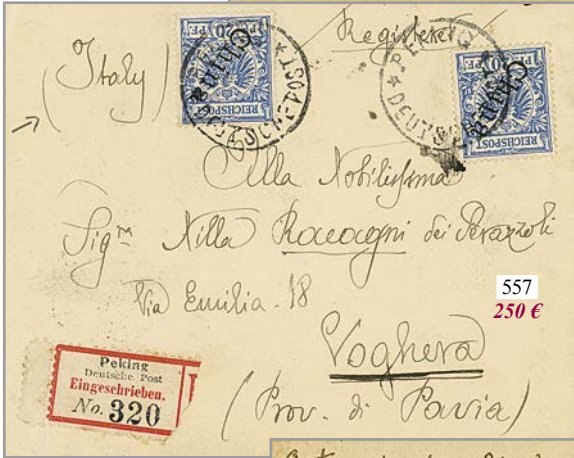 (Italy)
Registered
PF. 20 PF.
China
REICHSPOST
PEKING
DEUTSCHE POST
PF. 20 PF.
China
REICHSPOST
PEKING
DEUTSCHE
Alla Nobilissima
Sigra Nilla Racagni dei Perazzoli
Via Emilia. 18
Voghera
(Prov. di Pavia)
557
250 €
Peking
Deutsche Post
Eingeschrieben.
No. 320